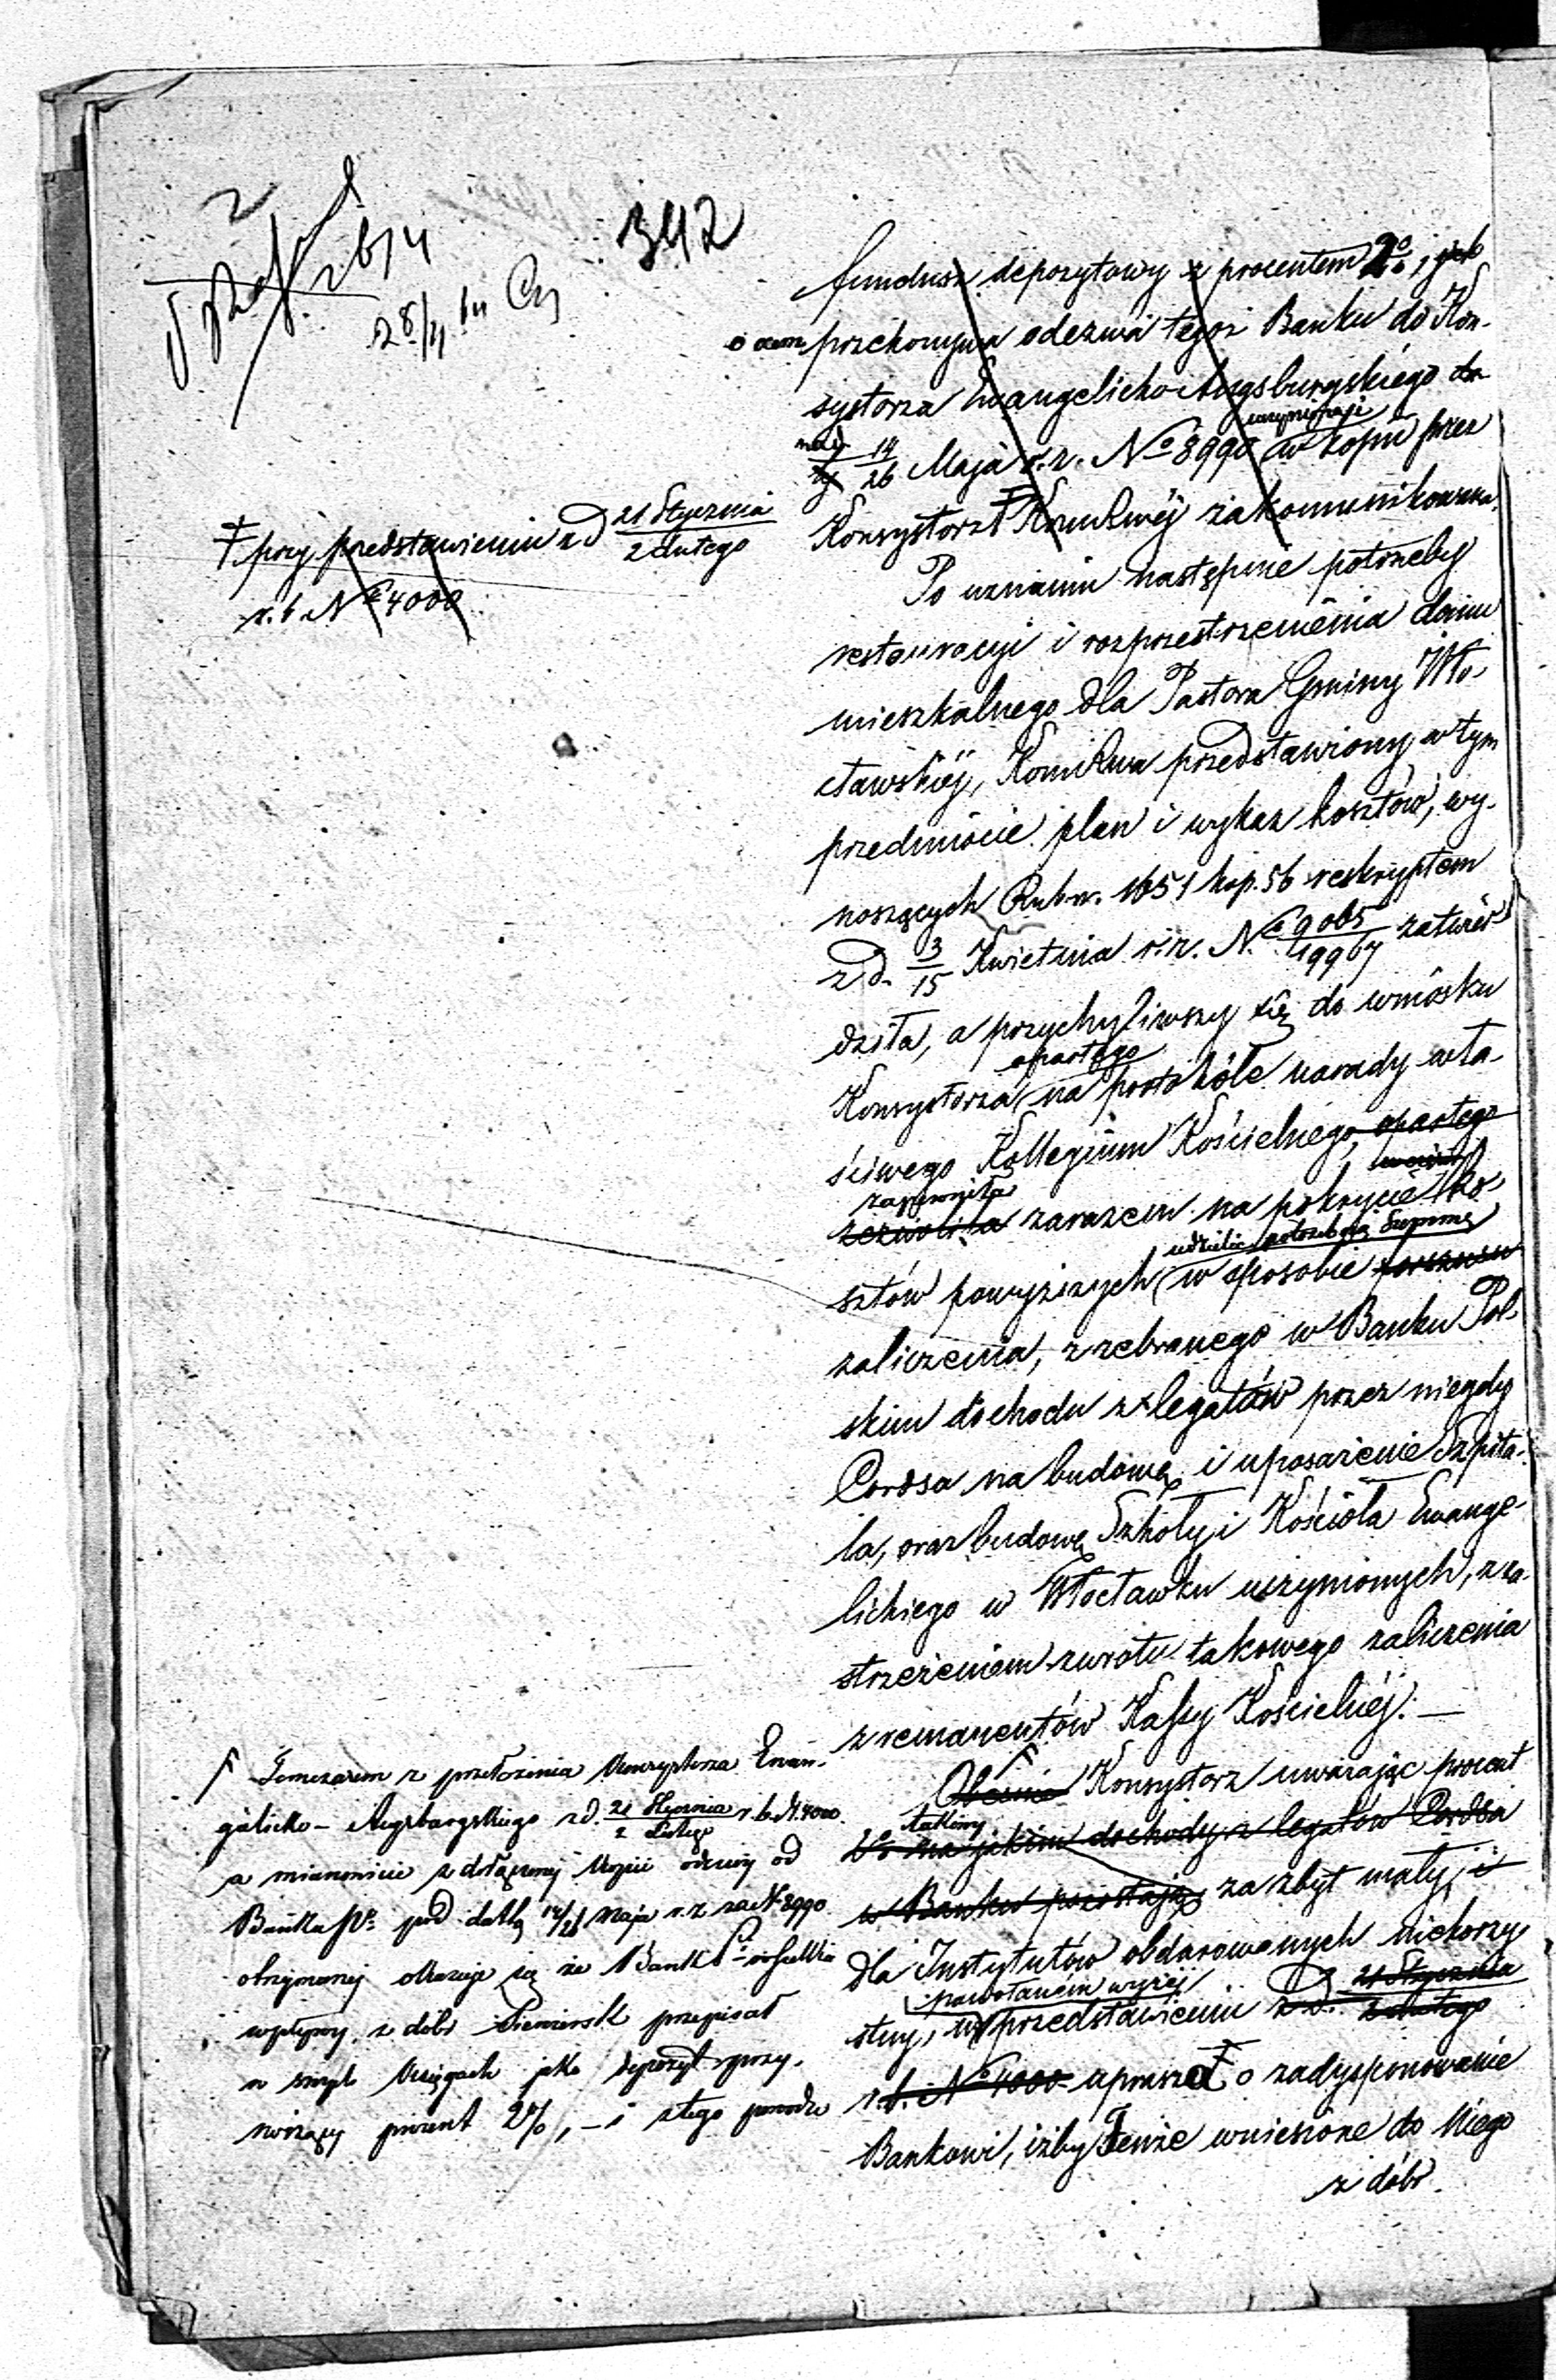 342
28/4 64
fundusz depozytowy z procentem 2%, jak
o czem przekonywa odezwa tegoż Banku do Kon-
systorza Ewangelicko-Augsburgskiego
14/26 Maja r.z. No 8990 w kopii przez
Konsystorz Kommissyi zakomunikowana.
† przy przedstawieniu z d. 21 Stycznia / 2 Lutego
r. b. No 4000
Po uznaniu następnie potrzeby
restauracyi i rozprzestrzenienia domu
mieszkalnego dla Pastora Gminy Wło-
cławskiéj, przedstawiony w tym
przedmiocie plan i wykaz kosztów, wy-
noszących Rub. sr. 1651 kop. 56 reskryptem
z d. 3/15 Kwietnia r.z. No 9065/19967 zatwier
dziła, a przychyliwszy się do wniosku
opartego
Konsystorza na protokóle narady wła-
ściwego Kollegium Kościelnego, opartego
zapewniła
zezwoliła zarazem na pokrycie ko-
udzielić potrzebną summę
sztów powyższych w sposobie forszusu
zaliczenia, z zebranego w Banku Pol-
skim dochodu z legatów przez niegdy
Cordsa na budowę i uposażenie Szpita-
la, oraz budowę Szkoły i Kościoła Ewange-
lickiego w Włocławku uczynionych, z za-
strzeżeniem zwrotu takowego zaliczenia
z remanentów Kassy Kościelnéj. —
Obecnie Konsystorz uważając procent
takowy
na jakim dochody z legatów Cordsa
w Banku pozostają za zbyt mały, i
dla Instytutów obdarowanych niekorzy
powołaném wyżéj
stny, w przedstawieniu z d. 21 Stycznia / 2 Lutego
r. b. No 4000 uprasza o zadysponowanie
Bankowi, iżby Tenże wniesione do Niego
z dóbr
Tymczasem z przełożenia Konsystorza Ewan-
gelicko-Augsburgskiego z d. 21 Stycznia / 2 Lutego r. b. N. 4000
a mianowicie z dołączonej kopii odezwy od
Banku Po pod datą 14/26 Maja r. z. za N. 8990
otrzymanej okazuje się że Bank Pi
wpływy z dóbr przepisał
w swych księgach jako depozyt przy-
noszący procent 2%, — i z tego powodu